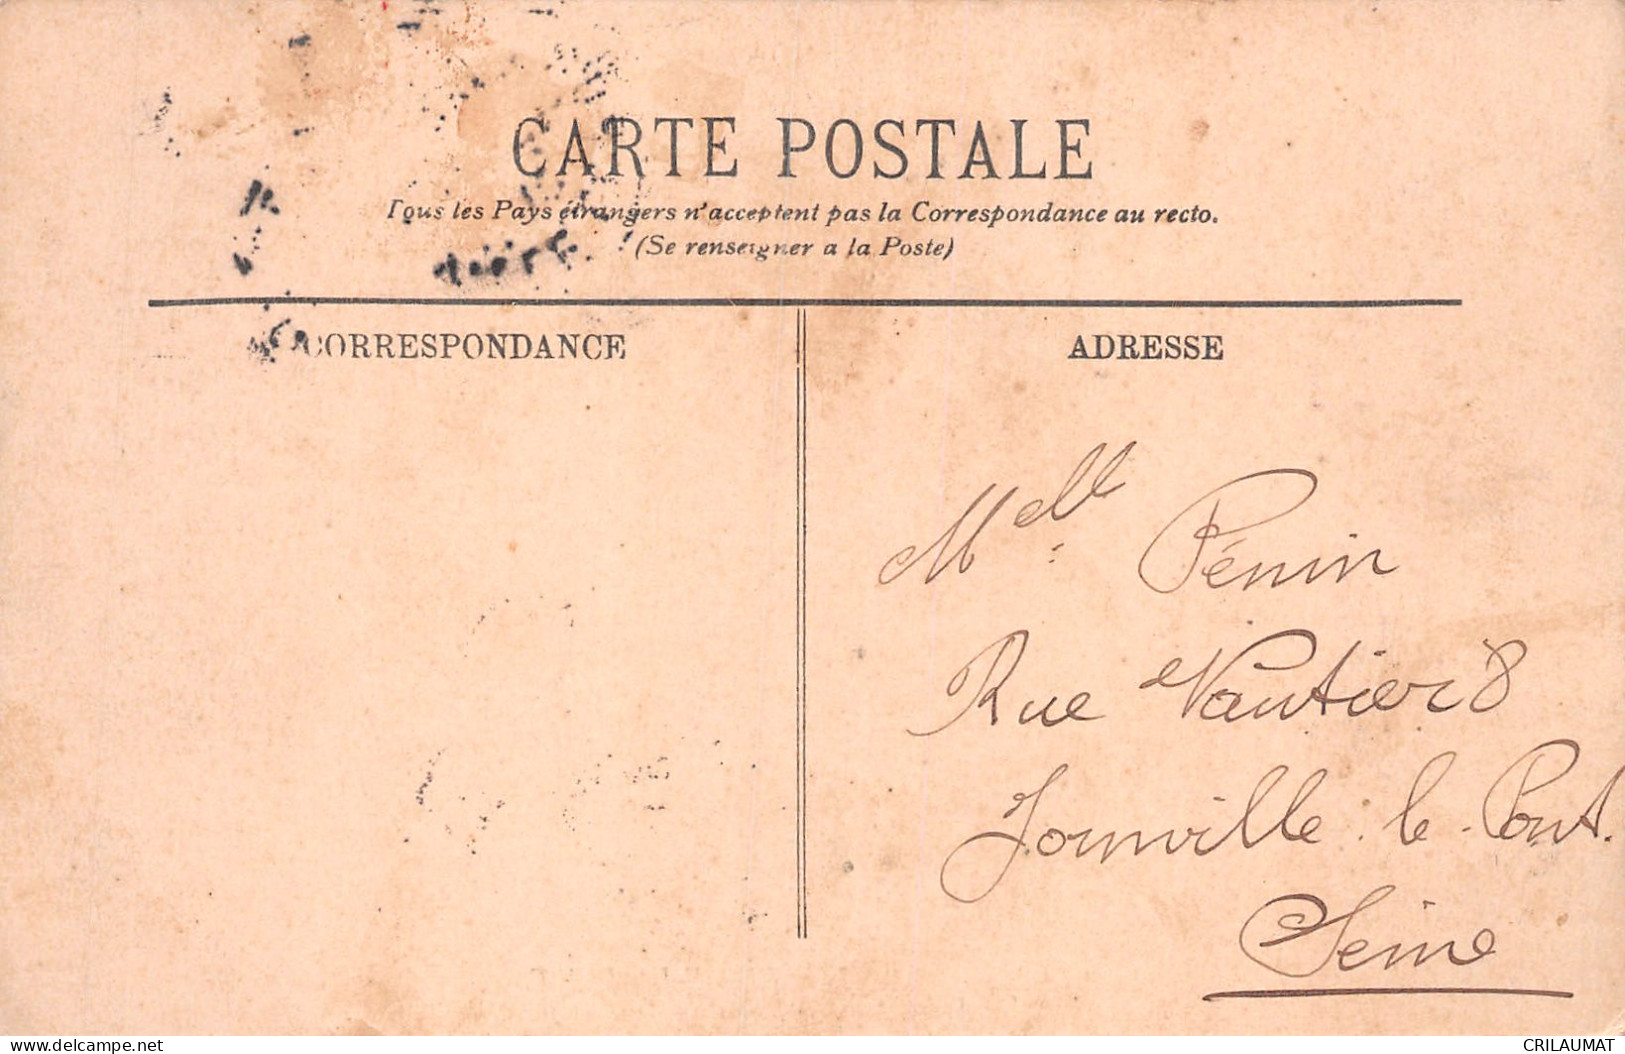 CARTE POSTALE
Tous les Pays étrangers n'acceptent pas la Correspondance au recto.
(Se renseigner a la Poste)
CORRESPONDANCE
ADRESSE
Melle Pénin
Rue Vautier 8
Joinville-le-Pont.
Seine
delcampe.net
CRILAUMAT